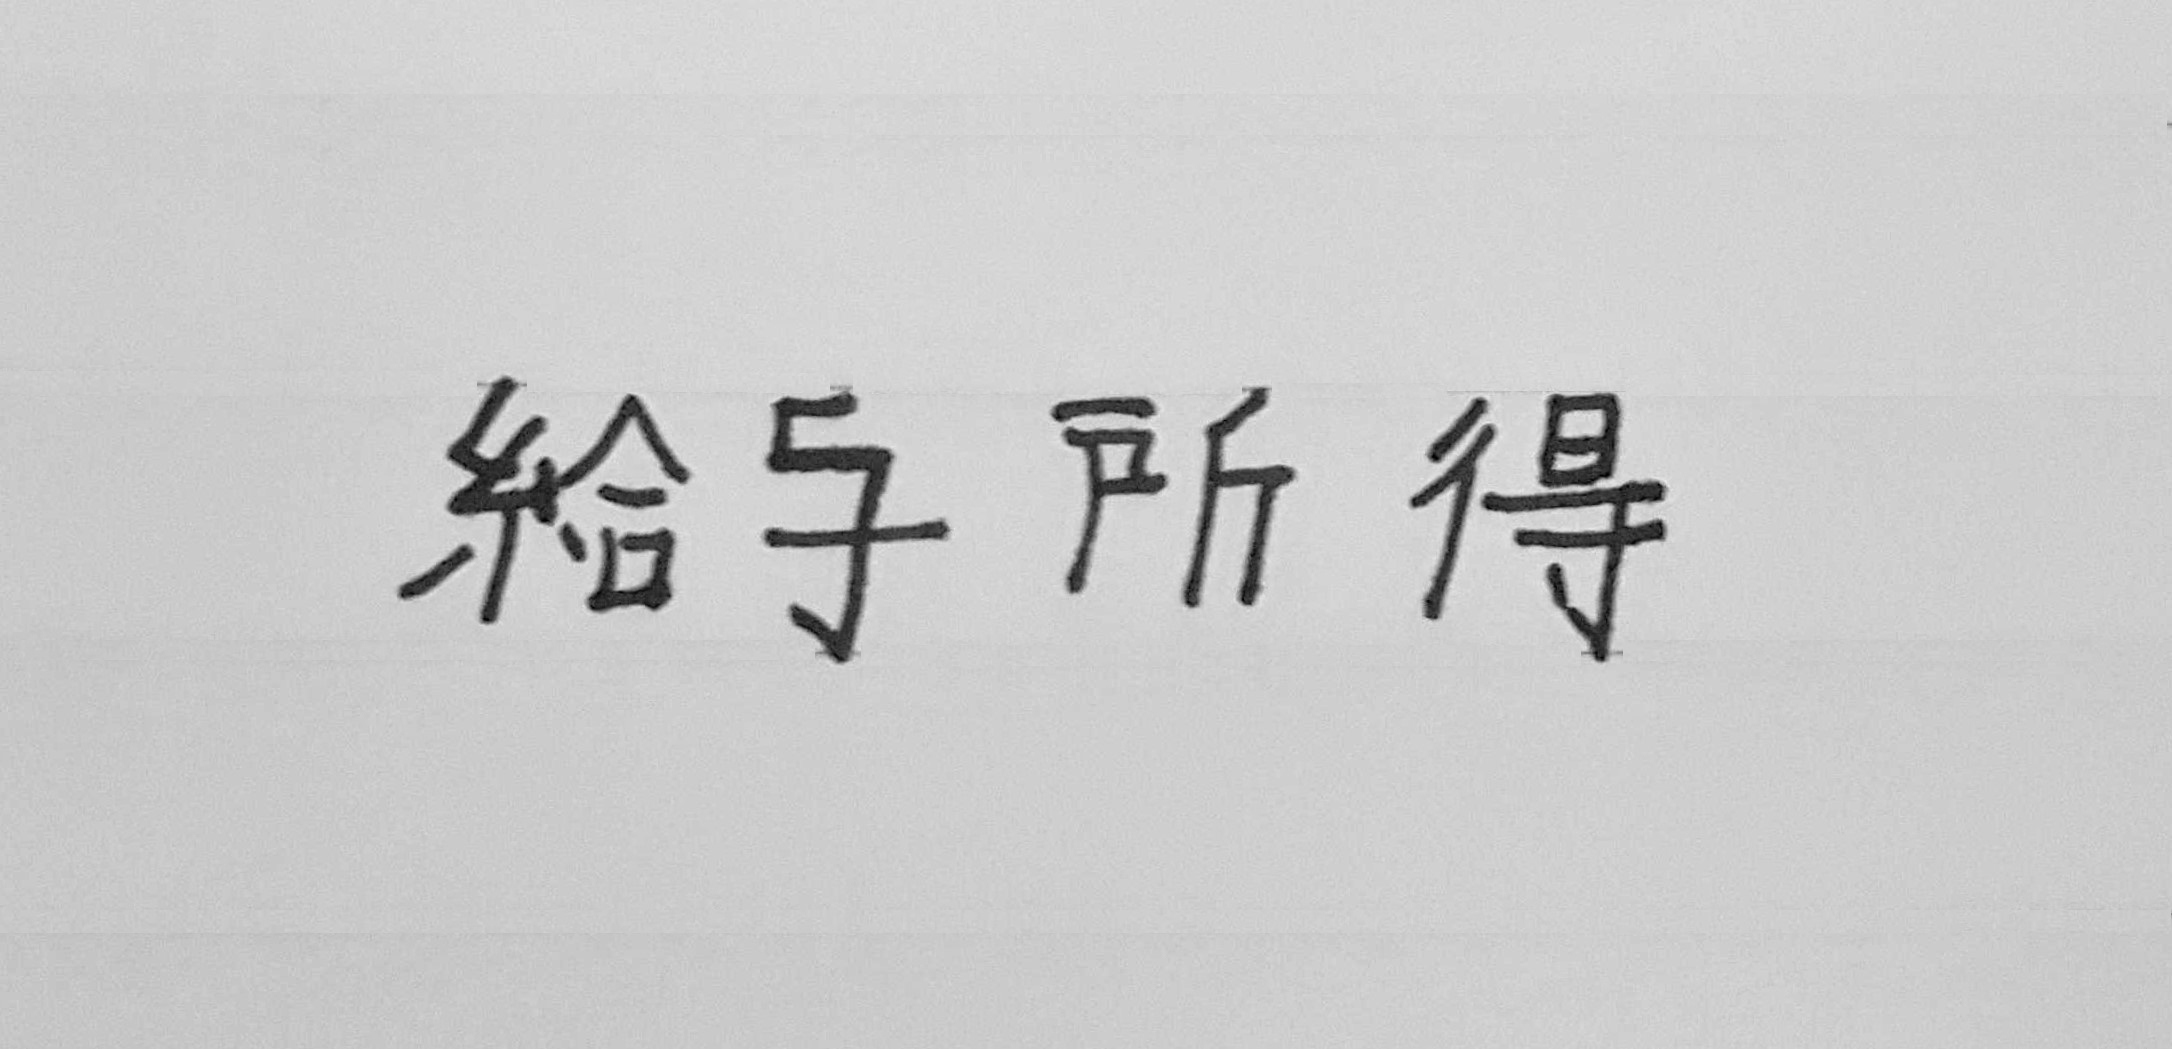 給与所得